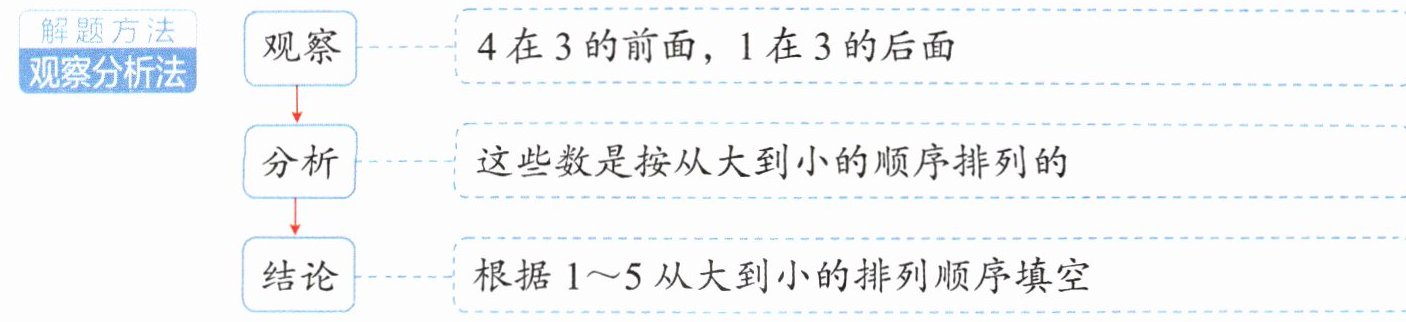 解题方法
观察分析法
观察
4在3的前面，1在3的后面
分析
这些数是按从大到小的顺序排列的
结论
根据1～5从大到小的排列顺序填空